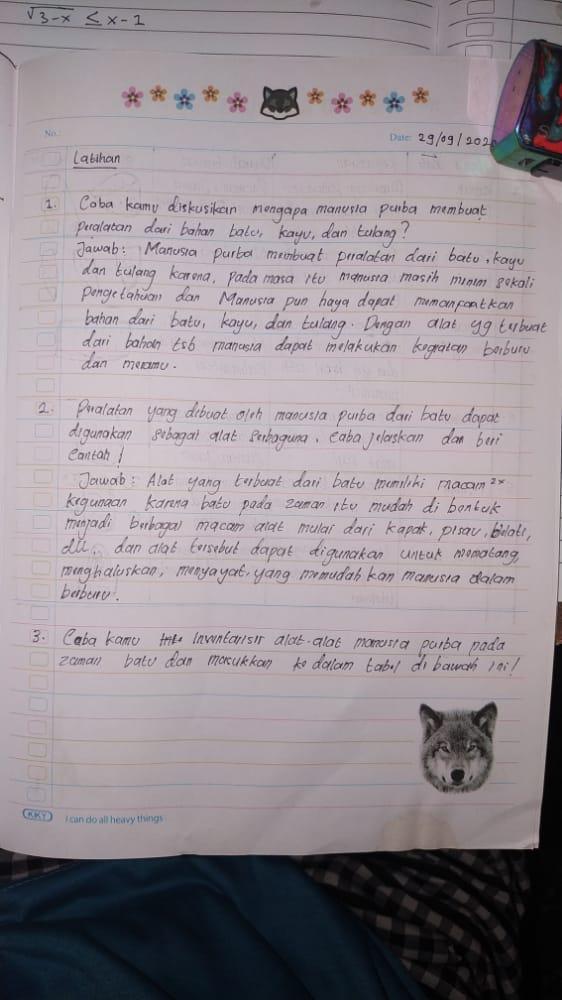 √3-x ≤ x-1
No.:
Date: 29/09/202
Latihan
1. Coba kamu diskusikan mengapa manusia purba membuat
peralatan dari bahan batu, kayu, dan tulang?
Jawab: Manusia purba membuat peralatan dari batu, kayu
dan tulang karena, pada masa itu manusia masih minim sekali
pengetahuan dan Manusia pun haya dapat memanpaatkan
bahan dari batu, kayu, dan tulang. Dengan alat yg terbuat
dari bahan tsb manusia dapat melakukan kegiatan berburu
dan meramu.
2. Peralatan yang dibuat oleh manusia purba dari batu dapat
digunakan sebagai alat serbaguna. Coba jelaskan dan beri
contoh!
Jawab: Alat yang terbuat dari batu memiliki macam²
kegunaan karena batu pada zaman itu mudah di bentuk
menjadi berbagai macam alat mulai dari kapak, pisau, belati,
dll. dan alat tersebut dapat digunakan untuk memotong,
menghaluskan, menyayat, yang memudahkan manusia dalam
berburu.
3. Coba kamu inventarisir alat-alat manusia purba pada
zaman batu dan masukkan ke dalam tabel di bawah ini!
KKY I can do all heavy things